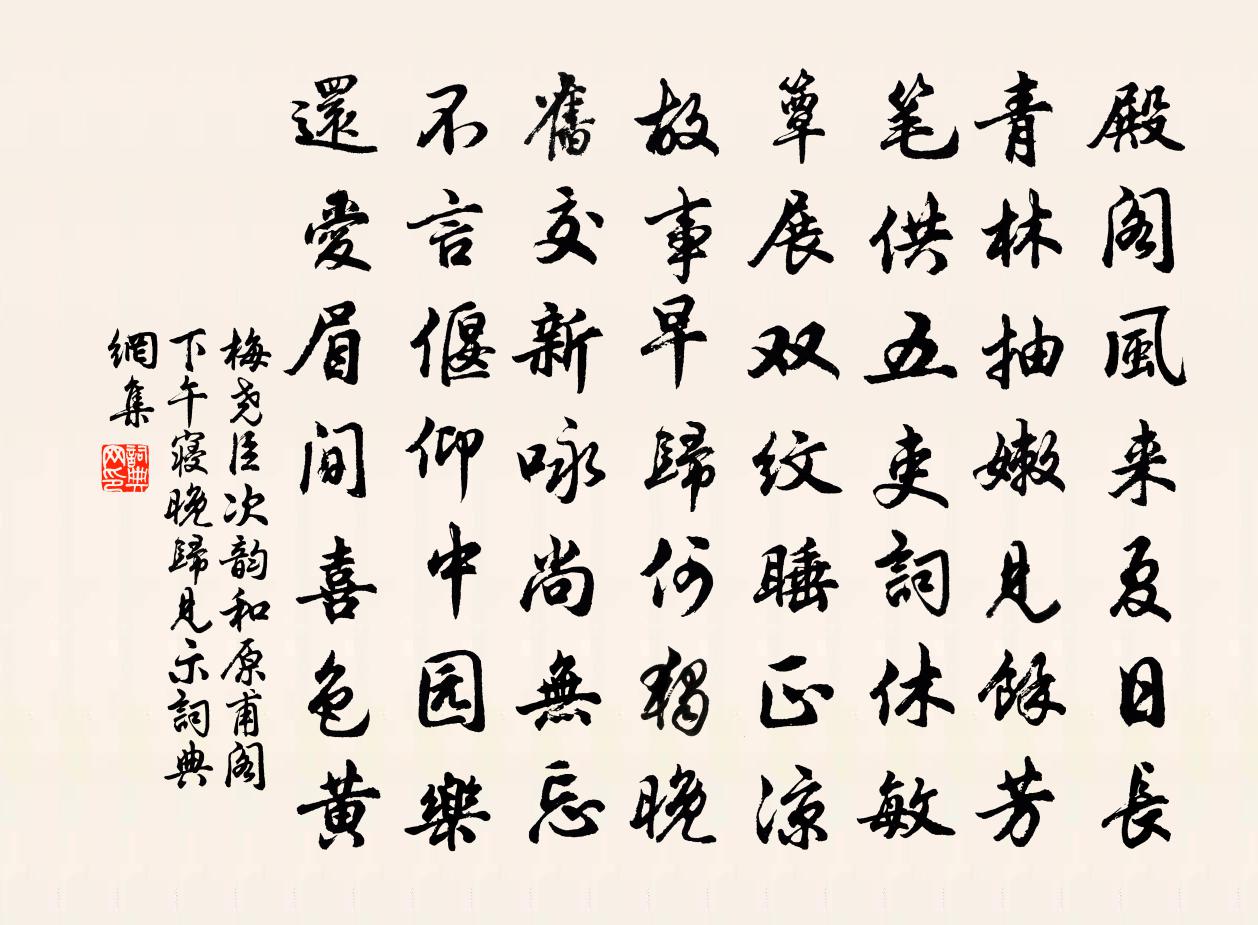 殿阁風来夏日長
青林抽嫩見餘芳
笔供五吏詞休敏
簟展双紋睡正凉
故事早歸何獨晚
舊交新咏尚無忘
不言偃仰中园樂
還愛眉間喜色黄
梅尧臣次韵和原甫阁
下午寝晚歸見示詞典
網集
詞典网印